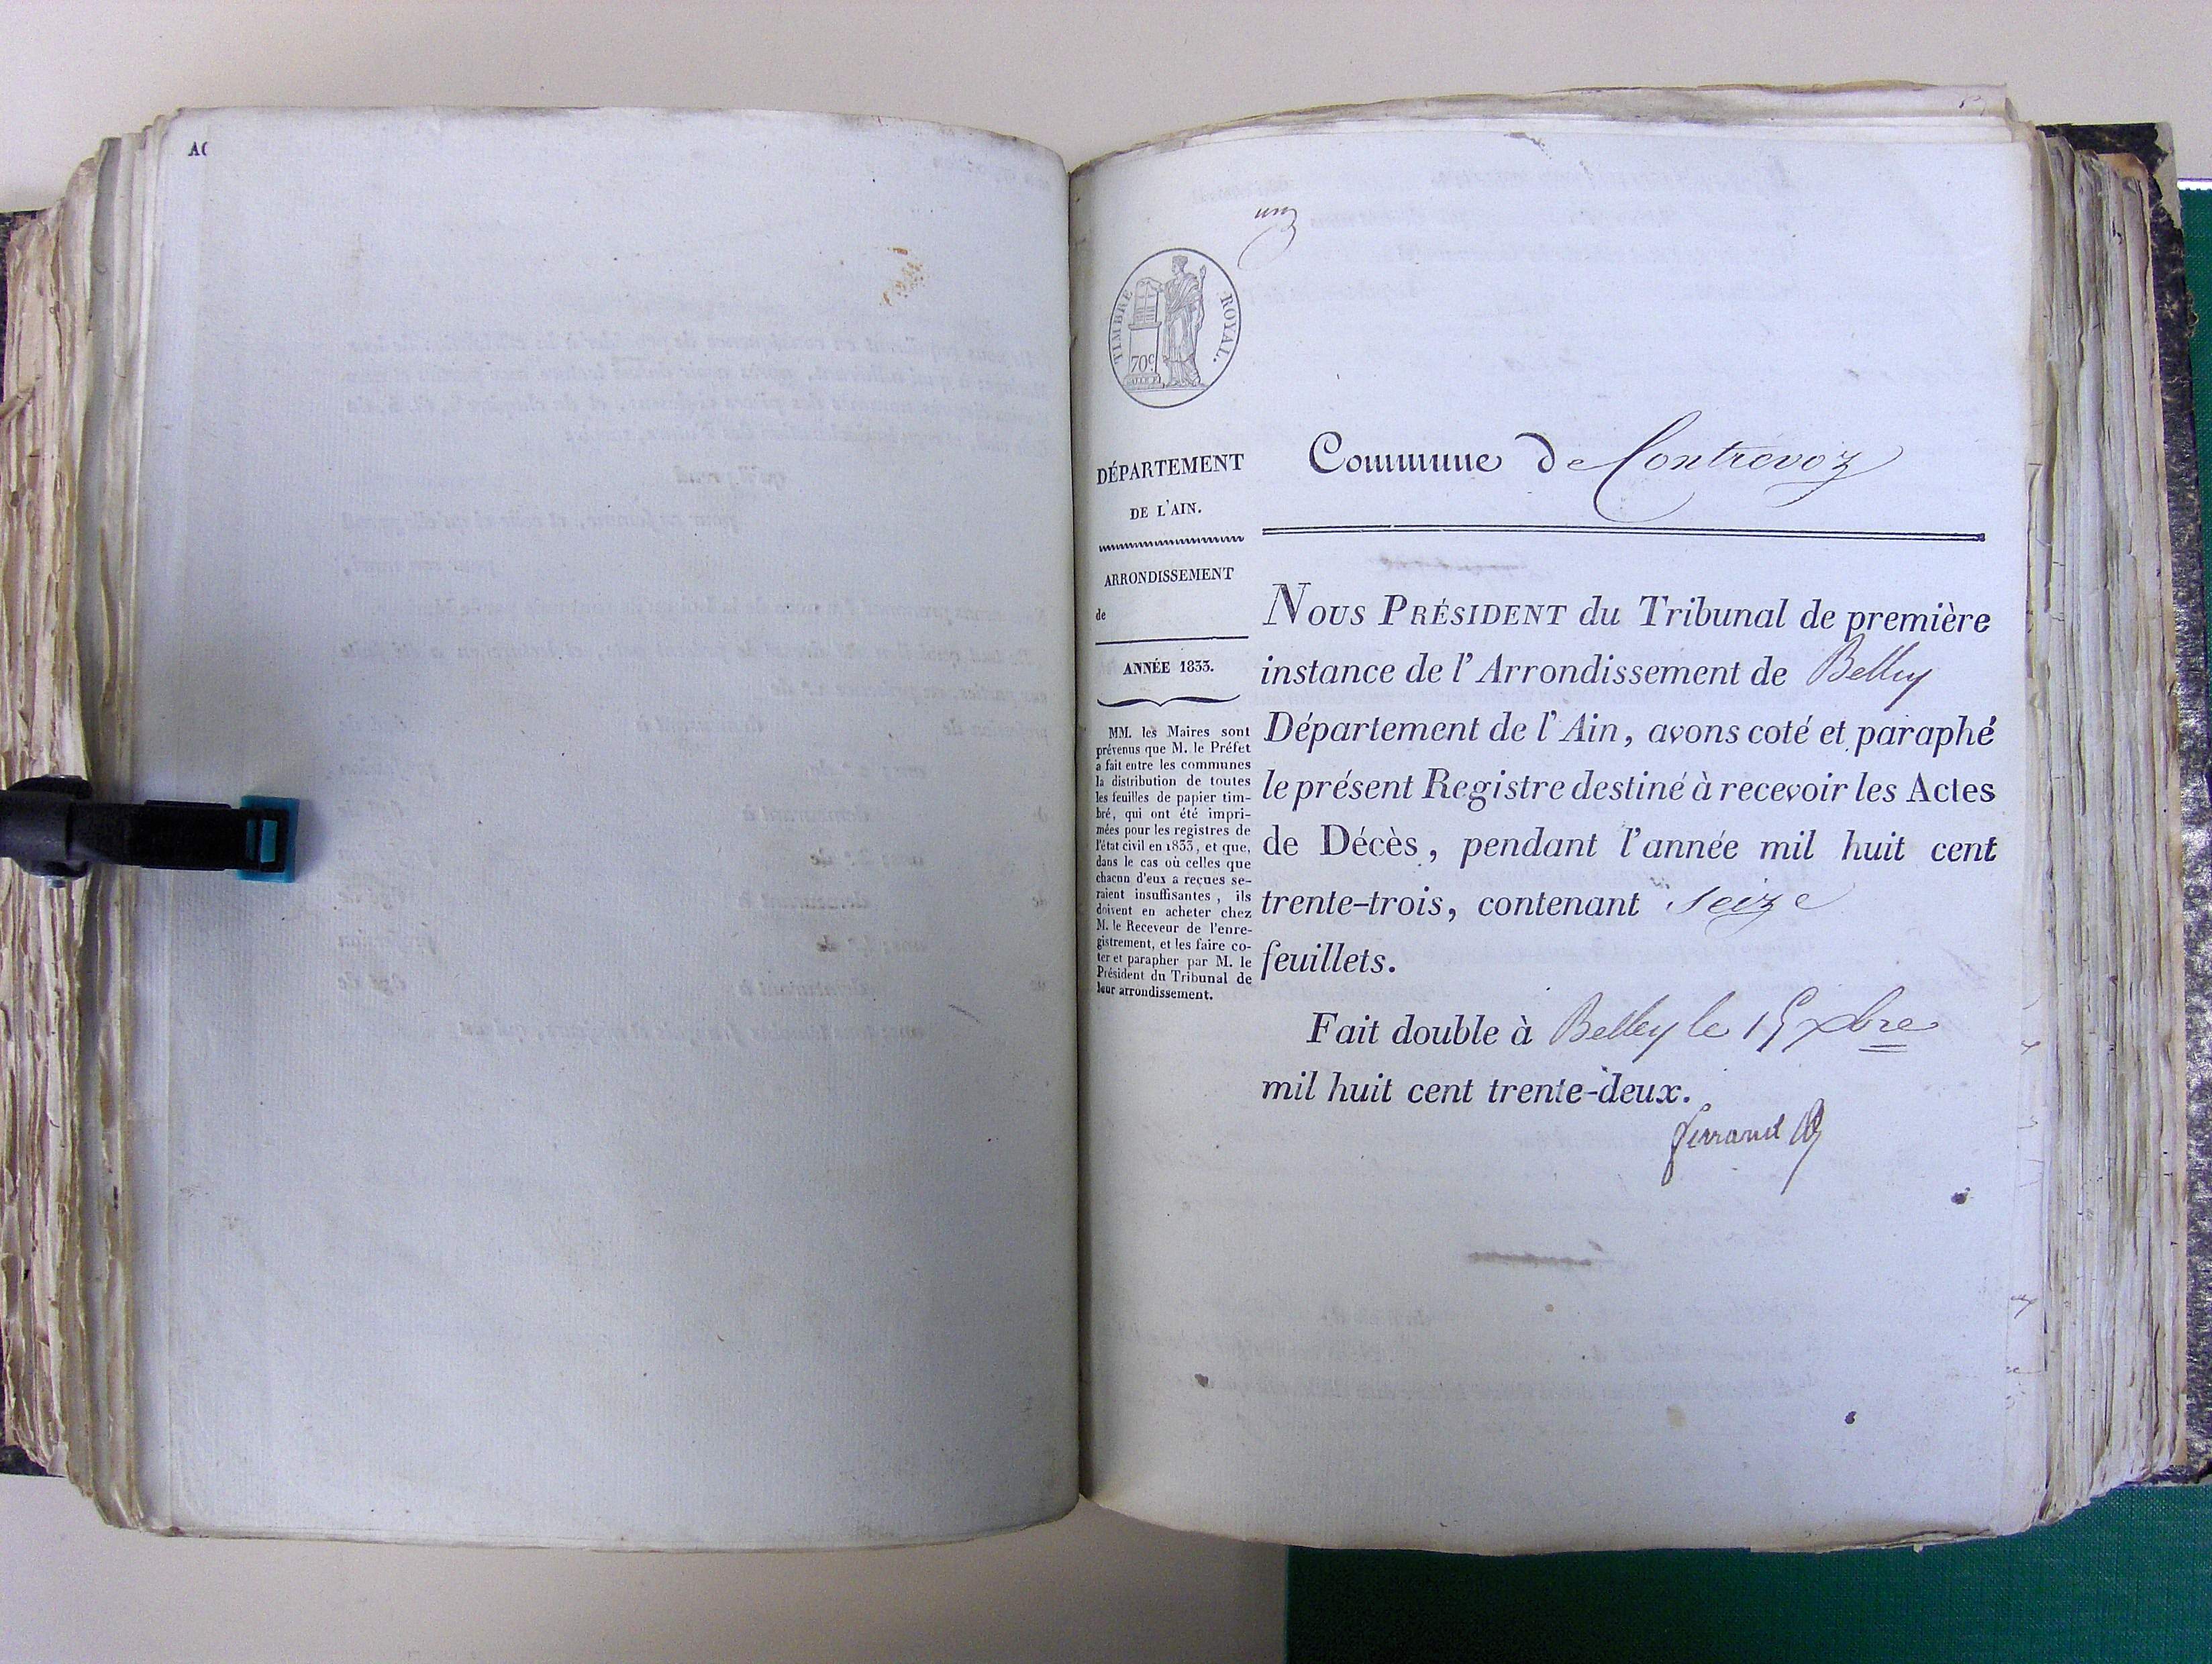 AC
un
TIMBRE ROYAL.
70c
DÉPARTEMENT
DE L'AIN.
ARRONDISSEMENT
de
ANNÉE 1833.
MM. les Maires sont
prévenus que M. le Préfet
a fait entre les communes
la distribution de toutes
les feuilles de papier tim-
bré, qui ont été impri-
mées pour les registres de
l'état civil en 1833, et que,
dans le cas où celles que
chacun d'eux a reçues se-
raient insuffisantes, ils
doivent en acheter chez
M. le Receveur de l'enre-
gistrement, et les faire co-
ter et parapher par M. le
Président du Tribunal de
leur arrondissement.
Commune de Contrevoz
NOUS PRÉSIDENT du Tribunal de première
instance de l'Arrondissement de Belley
Département de l'Ain, avons coté et paraphé
le présent Registre destiné à recevoir les Actes
de Décès, pendant l'année mil huit cent
trente-trois, contenant seize
feuillets.
Fait double à Belley le 15 xbre
mil huit cent trente-deux.
Ferrand